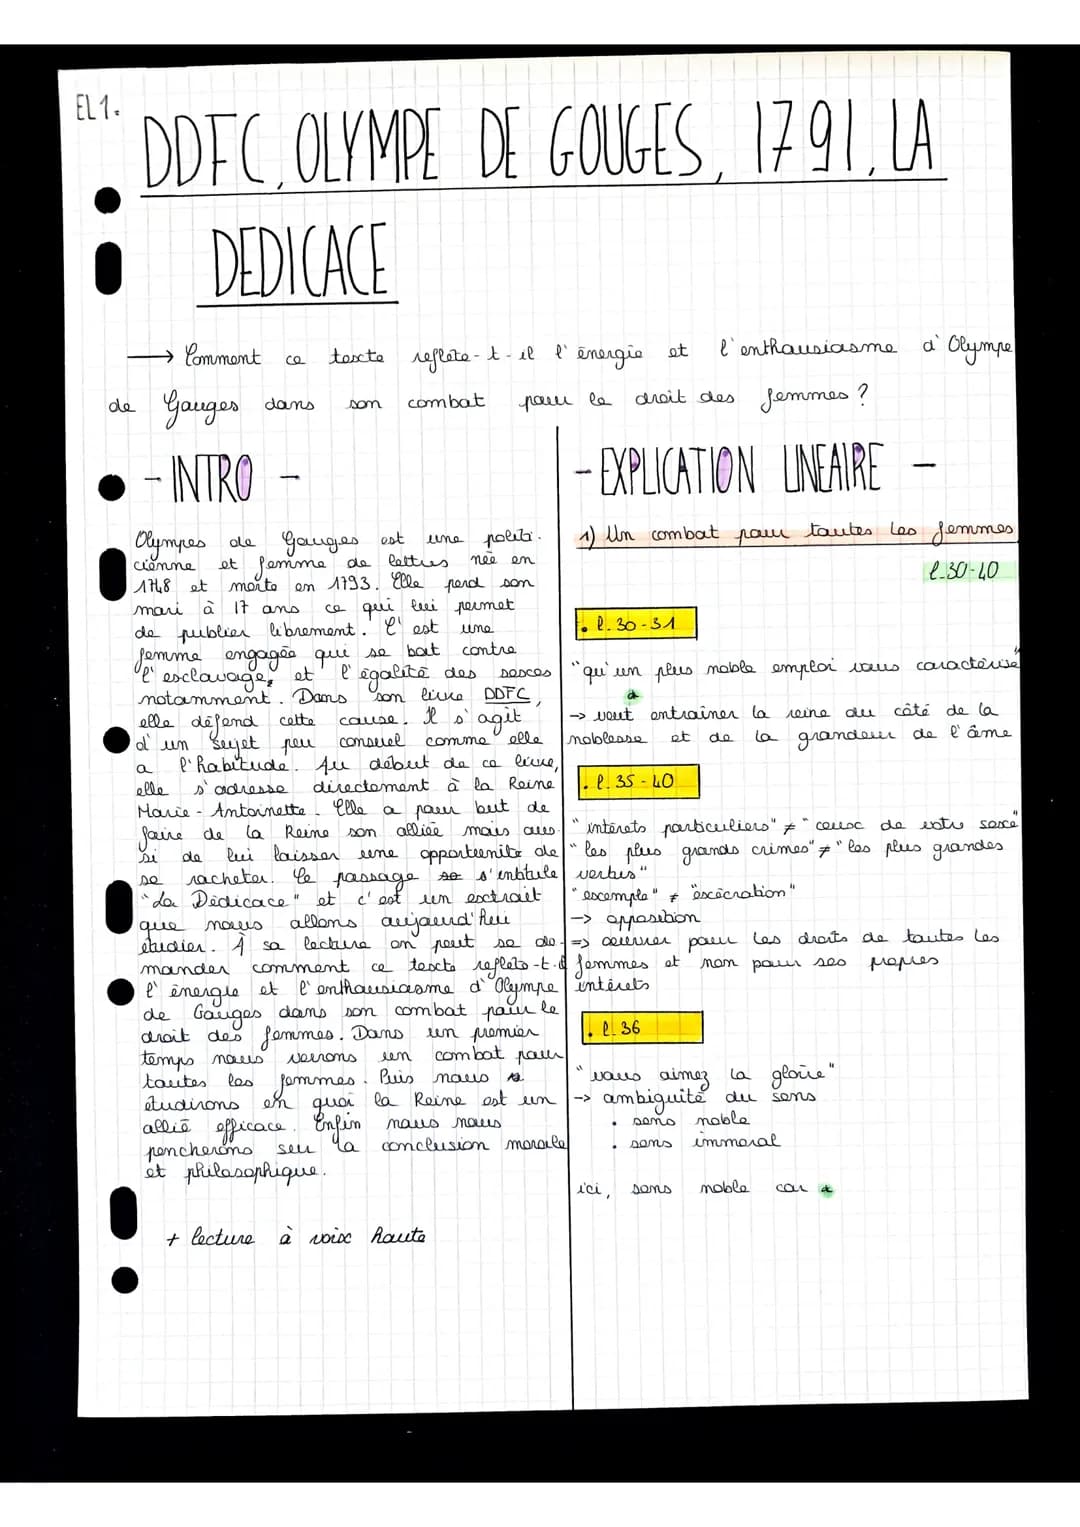 EL1.
DDFC, OLYMPE DE GOUGES, 1791, LA
DEDICACE
→ Comment ce texte reflète-t-il l'énergie et l'enthousiasme d'Olympe
de Gouges dans son combat pour le droit des femmes ?
- INTRO -
Olympes de Gouges est une politi-
cienne et femme de lettres née en
1748 et morte en 1793. Elle perd son
mari à 17 ans ce qui lui permet
de publier librement. C'est une
femme engagée qui se bat contre
l'esclavage, et l'égalité des sexes
notamment. Dans son livre DDFC,
elle défend cette cause. Il s'agit
d'un sujet peu consuel comme elle
a l'habitude. Au début de ce livre,
elle s'adresse directement à la Reine
Marie-Antoinette. Elle a pour but de
faire de la Reine son alliée mais aus-
si de lui laisser une opportunité de
se racheter. Le passage s'intitule
"La Dédicace" et c'est un extrait
que nous allons aujourd'hui
étudier. À sa lecture on peut se de-
mander comment ce texte reflète-t-il
l'énergie et l'enthousiasme d'Olympe
de Gouges dans son combat pour le
droit des femmes. Dans un premier
temps nous verrons un combat pour
toutes les femmes. Puis nous
étudirons en quoi la Reine est un
allié efficace. Enfin nous nous
pencherons sur la conclusion morale
et philosophique.
+ lecture à voix haute
- EXPLICATION LINEAIRE -
1) Un combat pour toutes les femmes
l.30-40
. l.30-31
"qu'un plus noble emploi vous caractérise"
→ veut entraîner la reine du côté de la
noblesse et de la grandeur de l'âme
. l.35-40
"intérêts particuliers" ≠ "ceux de votre sexe"
"les plus grands crimes" ≠ "les plus grandes
vertus"
"exemple" ≠ "éxécration"
→ opposition
⇒ oeuvrer pour les droits de toutes les
femmes et non pour ses propres
intérêts
. l.36
"vous aimez la gloire"
→ ambiguité du sens
. sens noble
. sens immoral
ici, sens noble car *